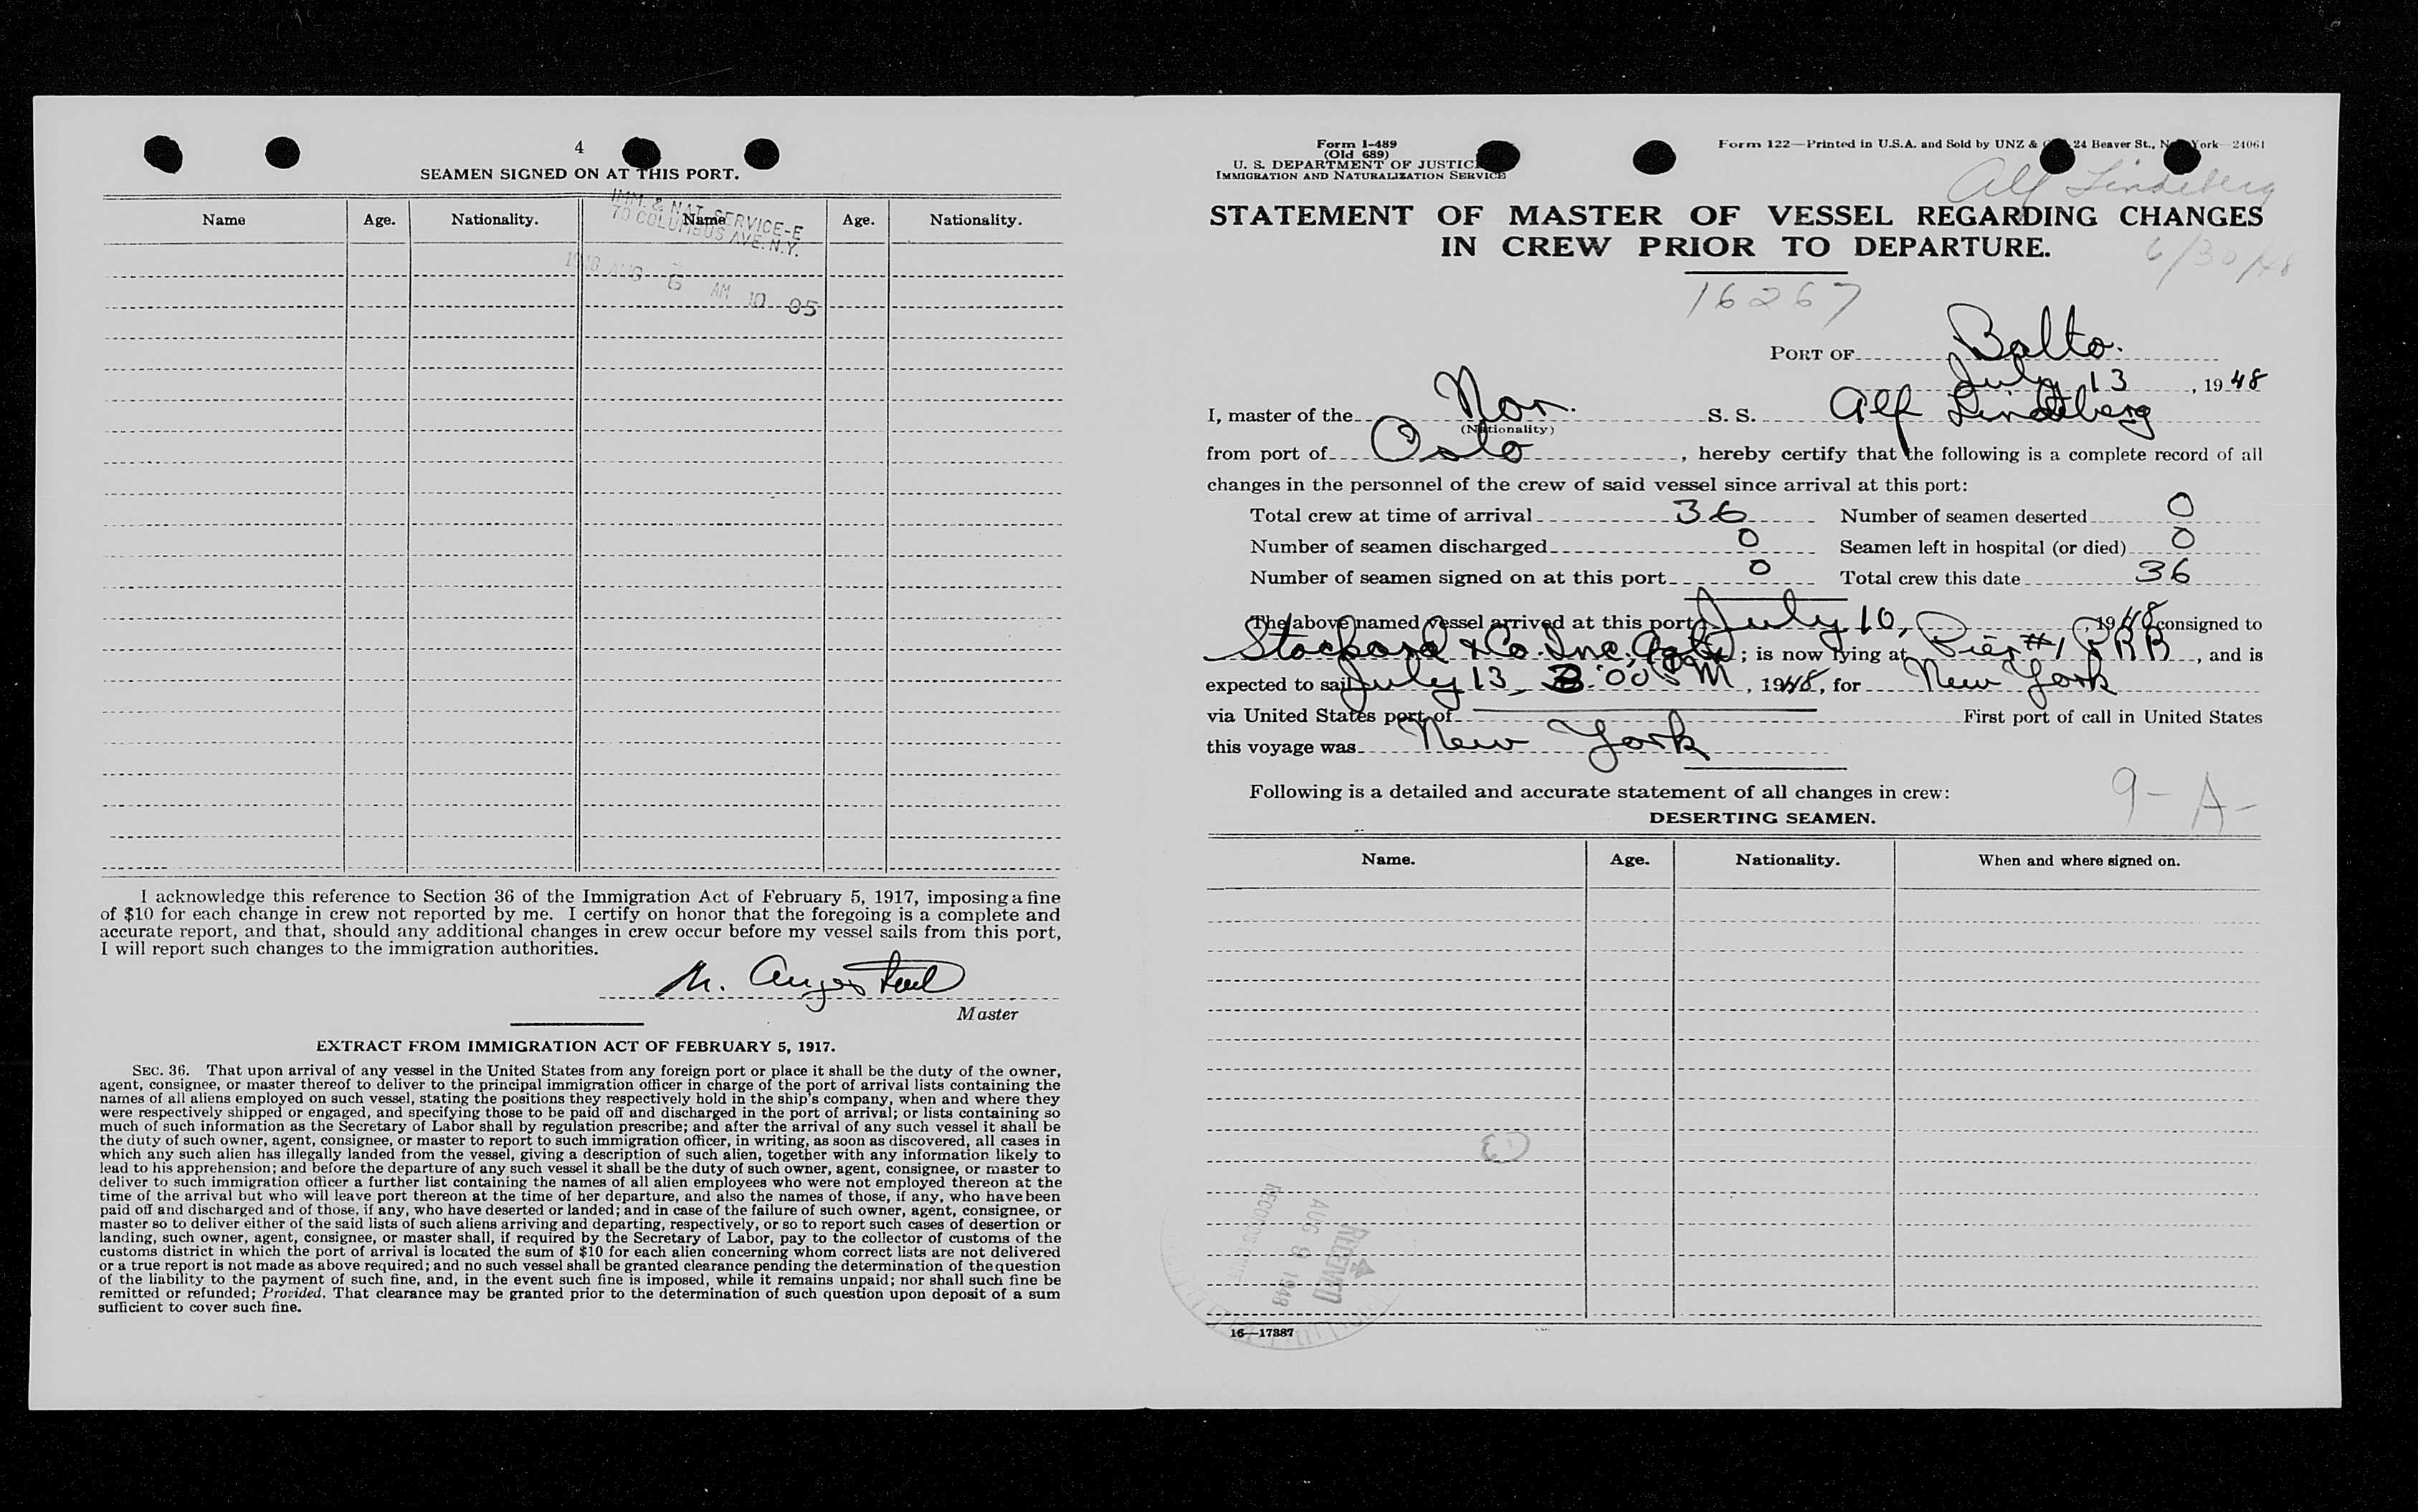 4
SEAMEN SIGNED ON AT THIS PORT.
Name Age. Nationality. Name Age. Nationality.
IMM. & NAT. SERVICE-E
70 COLUMBUS AVE. N.Y.
1948 AUG 6 AM 10 05
I acknowledge this reference to Section 36 of the Immigration Act of February 5, 1917, imposing a fine
of $10 for each change in crew not reported by me. I certify on honor that the foregoing is a complete and
accurate report, and that, should any additional changes in crew occur before my vessel sails from this port,
I will report such changes to the immigration authorities.
M.
Master
EXTRACT FROM IMMIGRATION ACT OF FEBRUARY 5, 1917.
SEC. 36. That upon arrival of any vessel in the United States from any foreign port or place it shall be the duty of the owner,
agent, consignee, or master thereof to deliver to the principal immigration officer in charge of the port of arrival lists containing the
names of all aliens employed on such vessel, stating the positions they respectively hold in the ship's company, when and where they
were respectively shipped or engaged, and specifying those to be paid off and discharged in the port of arrival; or lists containing so
much of such information as the Secretary of Labor shall by regulation prescribe; and after the arrival of any such vessel it shall be
the duty of such owner, agent, consignee, or master to report to such immigration officer, in writing, as soon as discovered, all cases in
which any such alien has illegally landed from the vessel, giving a description of such alien, together with any information likely to
lead to his apprehension; and before the departure of any such vessel it shall be the duty of such owner, agent, consignee, or master to
deliver to such immigration officer a further list containing the names of all alien employees who were not employed thereon at the
time of the arrival but who will leave port thereon at the time of her departure, and also the names of those, if any, who have been
paid off and discharged and of those, if any, who have deserted or landed; and in case of the failure of such owner, agent, consignee, or
master so to deliver either of the said lists of such aliens arriving and departing, respectively, or so to report such cases of desertion or
landing, such owner, agent, consignee, or master shall, if required by the Secretary of Labor, pay to the collector of customs of the
customs district in which the port of arrival is located the sum of $10 for each alien concerning whom correct lists are not delivered
or a true report is not made as above required; and no such vessel shall be granted clearance pending the determination of the question
of the liability to the payment of such fine, and, in the event such fine is imposed, while it remains unpaid; nor shall such fine be
remitted or refunded; Provided, That clearance may be granted prior to the determination of such question upon deposit of a sum
sufficient to cover such fine.
Form I-489
(Old 689)
U. S. DEPARTMENT OF JUSTICE
IMMIGRATION AND NATURALIZATION SERVICE
Form 122—Printed in U.S.A. and Sold by UNZ & 24 Beaver St., New York—24061
Alf Lindeberg
STATEMENT OF MASTER OF VESSEL REGARDING CHANGES
IN CREW PRIOR TO DEPARTURE.
6/30/48
16267
PORT OF Balto.
July 13, 1948
I, master of the Nor. S. S. Alf Lindeberg
(Nationality)
from port of Oslo, hereby certify that the following is a complete record of all
changes in the personnel of the crew of said vessel since arrival at this port:
Total crew at time of arrival 36 Number of seamen deserted 0
Number of seamen discharged 0 Seamen left in hospital (or died) 0
Number of seamen signed on at this port 0 Total crew this date 36
The above named vessel arrived at this port July 10, 1948 consigned to
Stockard & Co. Inc, ; is now lying at Pier #1 PRR, and is
expected to sail July 13, :00 PM, 1948, for New York
via United States port of First port of call in United States
this voyage was New York
Following is a detailed and accurate statement of all changes in crew:
9- A-
DESERTING SEAMEN.
Name. Age. Nationality. When and where signed on.
RECEIVED
AUG 9 1948
RECORDS UNIT
16—17387